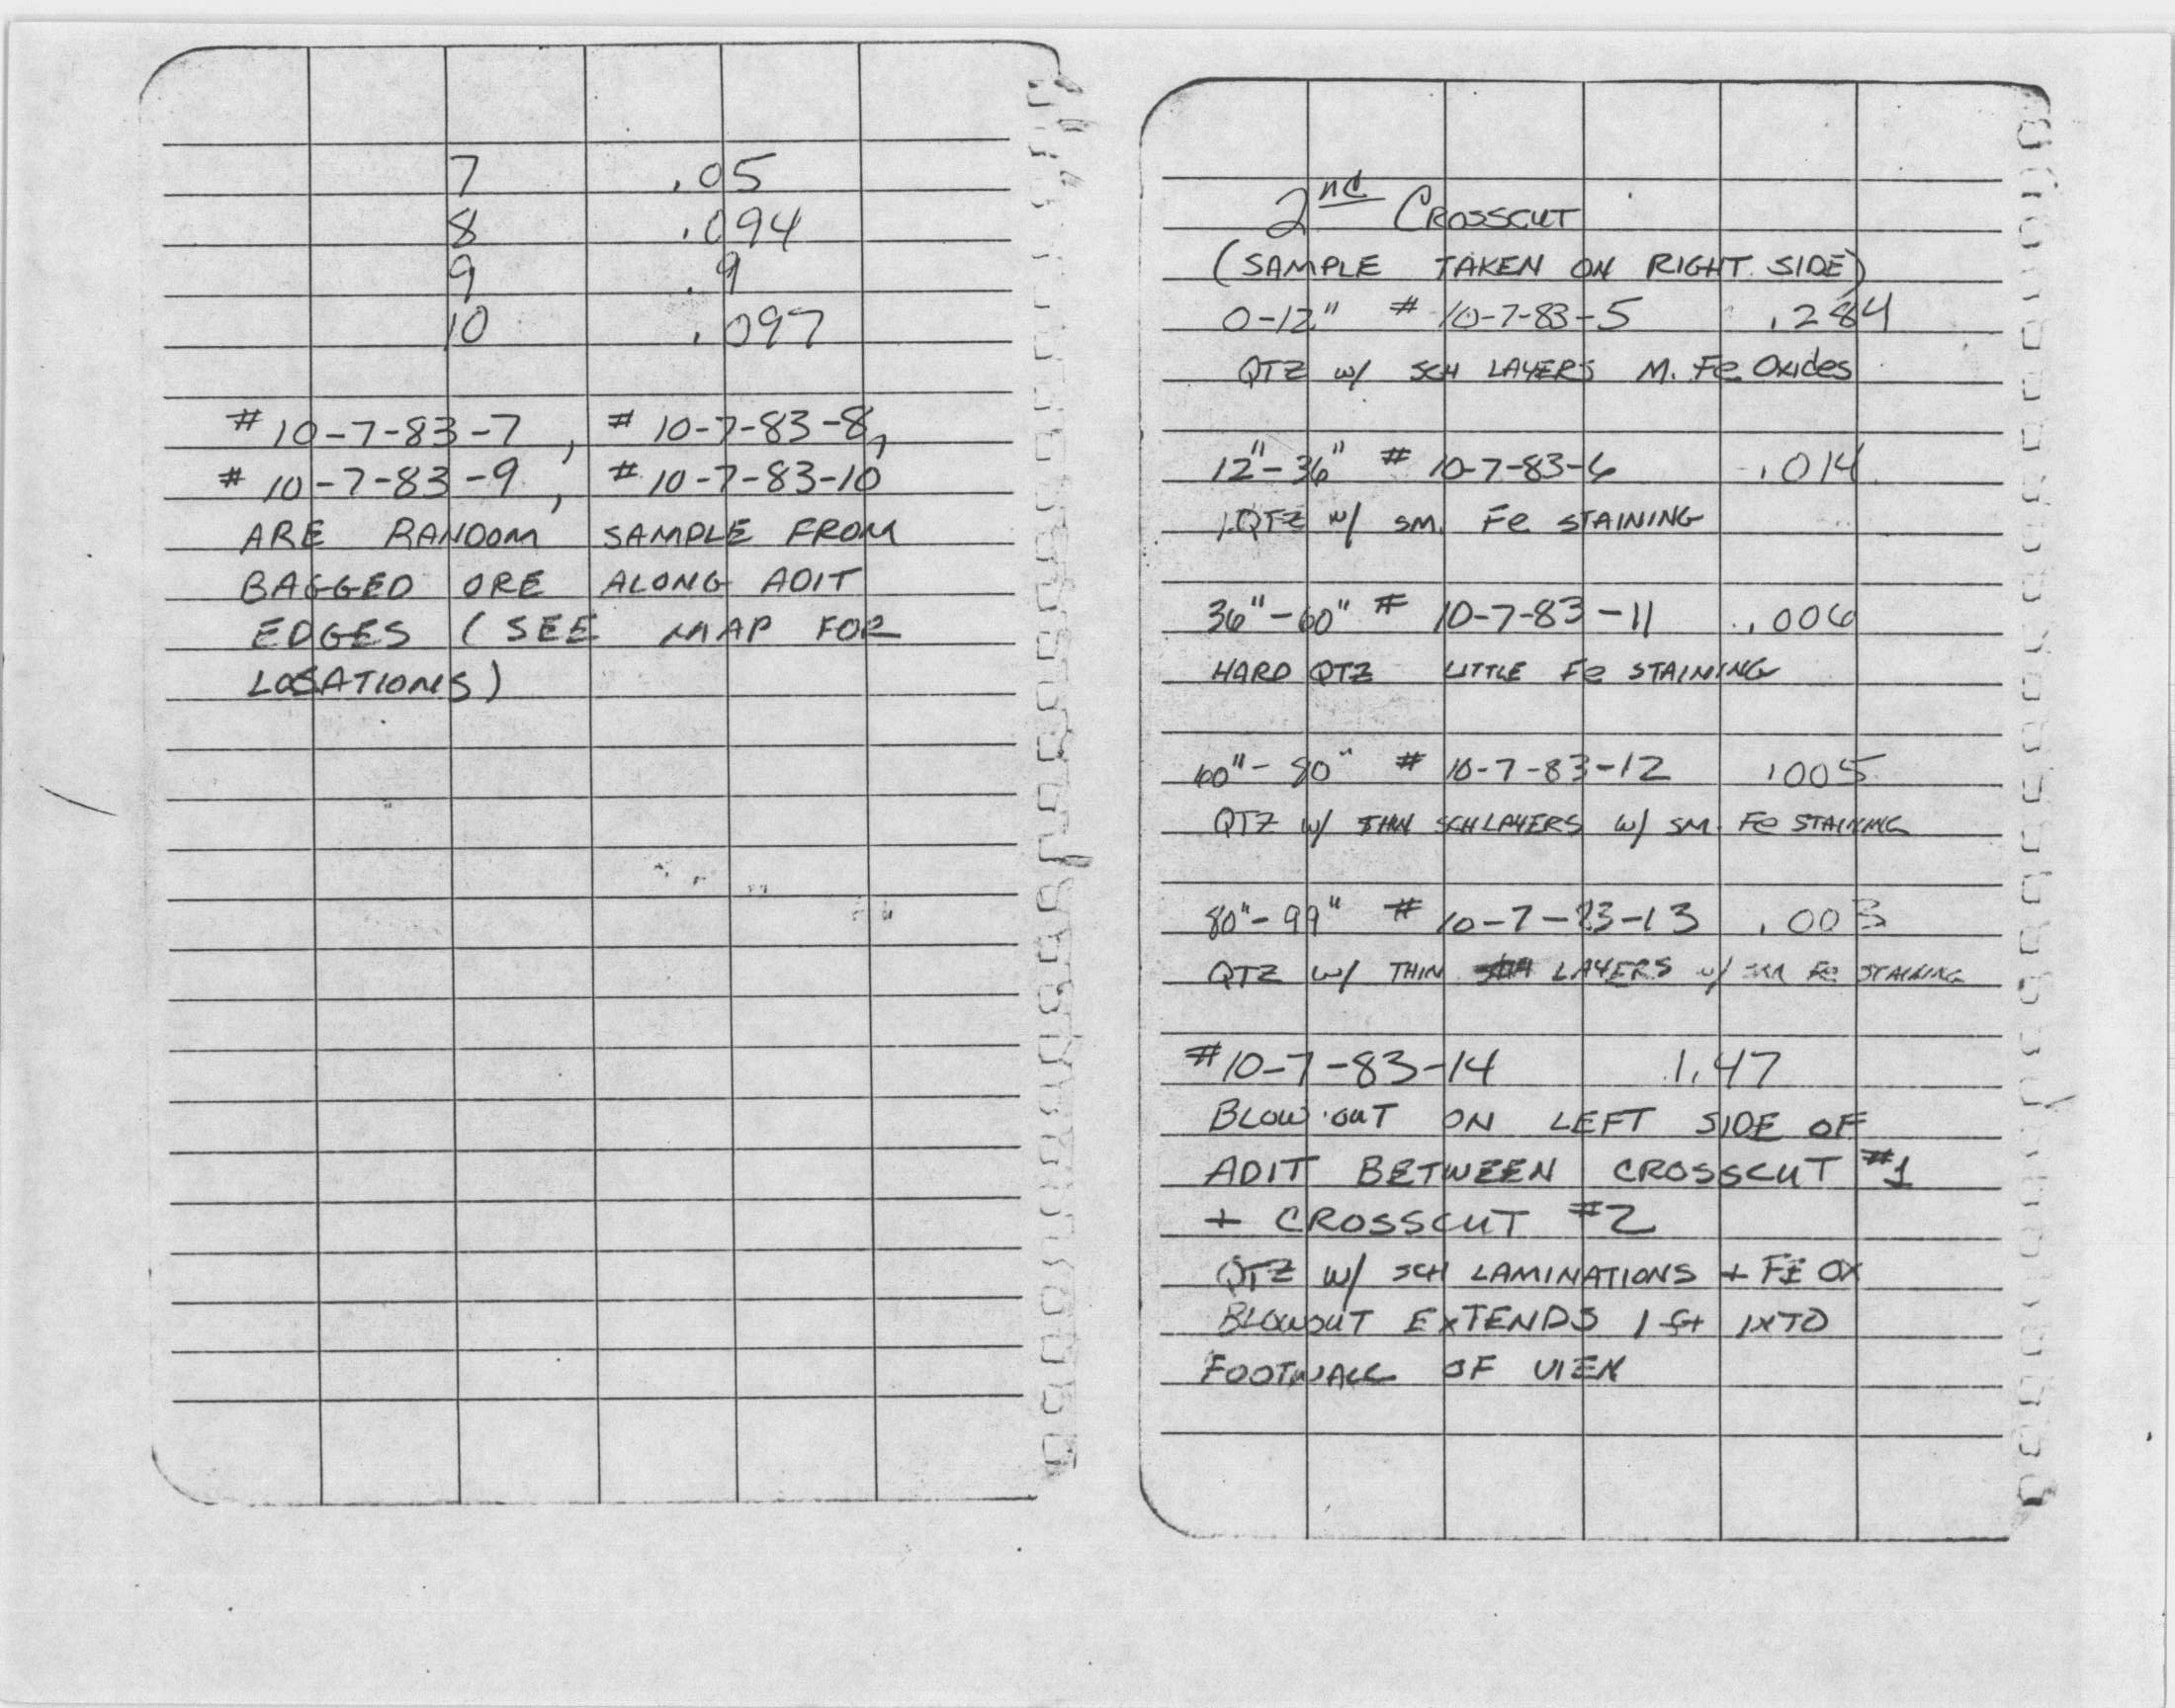 7 .05
8 .094
9 .9
10 .097
# 10-7-83-7, # 10-7-83-8,
# 10-7-83-9, # 10-7-83-10
ARE RANDOM SAMPLE FROM
BAGGED ORE ALONG ADIT
EDGES (SEE MAP FOR
LOSATIONS)
2nd CROSSCUT
(SAMPLE TAKEN ON RIGHT SIDE)
0-12" # 10-7-83-5 .284
QTZ w/ SCH LAYERS M. Fe Oxides
12"-36" # 10-7-83-6 .014
QTZ w/ SM. Fe STAINING
36"-60" # 10-7-83-11 .006
HARD QTZ LITTLE Fe STAINING
60"-80" # 10-7-83-12 .005
QTZ w/ THIN SCH LAYERS w/ SM. Fe STAINING
80"-99" # 10-7-83-13 .003
QTZ w/ THIN SCH LAYERS w/ SM Fe STAINING
#10-7-83-14 1.47
BLOW OUT ON LEFT SIDE OF
ADIT BETWEEN CROSSCUT #1
+ CROSSCUT #2
QTZ w/ SCH LAMINATIONS + FE OX
BLOWOUT EXTENDS 1 ft INTO
FOOTWALL OF VIEN